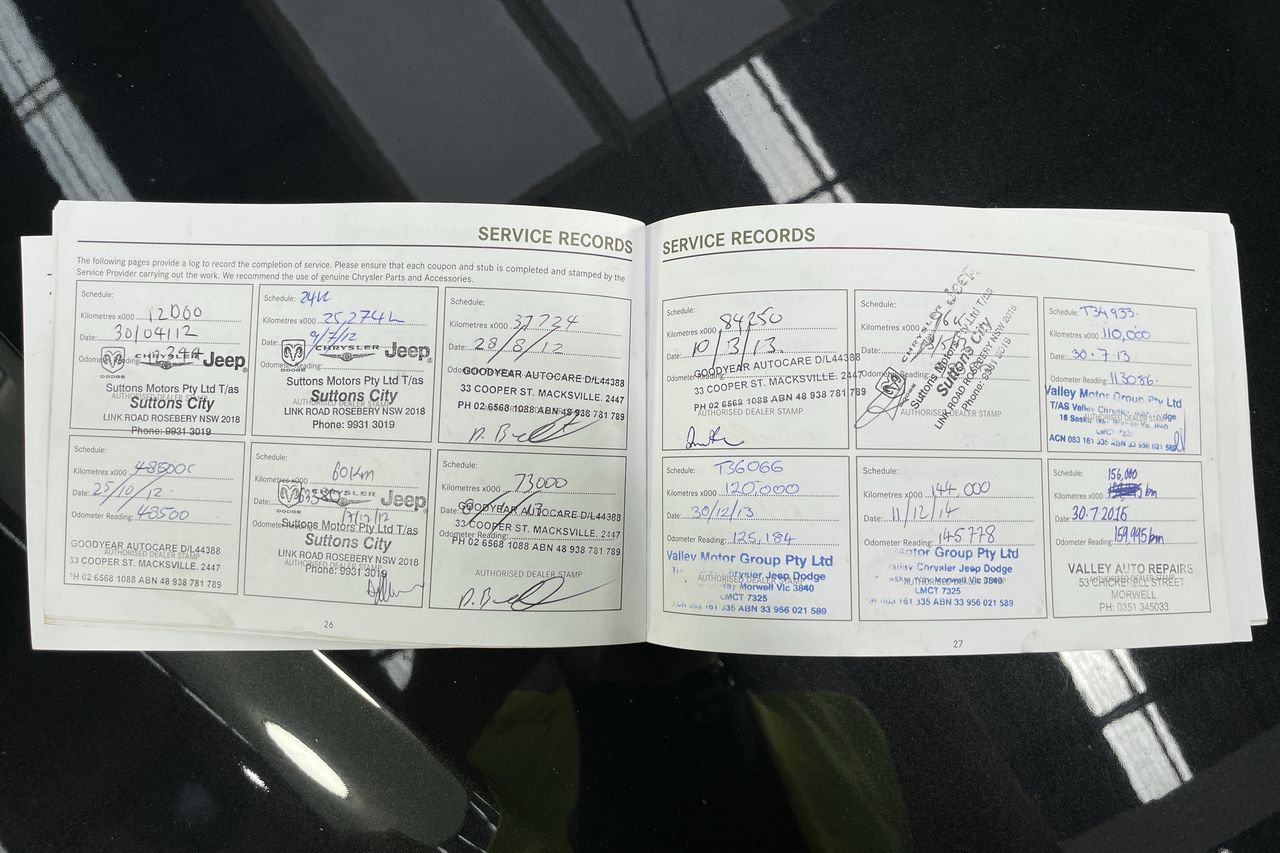 SERVICE RECORDS
The following pages provide a log to record the completion of service. Please ensure that each coupon and stub is completed and stamped by the
Service Provider carrying out the work. We recommend the use of genuine Chrysler Parts and Accessories.
Schedule:
Kilometres x000 12000
Date: 30/04/12
Odometer Reading:
DODGE CHRYSLER Jeep
Suttons Motors Pty Ltd T/as
AUTHORISED DEALER STAMP
Suttons City
LINK ROAD ROSEBERY NSW 2018
Phone: 9931 3019
Schedule: 24K
Kilometres x000 25,274
Date: 9/7/12
Odometer Reading:
DODGE CHRYSLER Jeep
Suttons Motors Pty Ltd T/as
AUTHORISED DEALER STAMP
Suttons City
LINK ROAD ROSEBERY NSW 2018
Phone: 9931 3019
Schedule:
Kilometres x000 37724
Date: 28/8/12
Odometer Reading:
GOODYEAR AUTOCARE D/L44388
33 COOPER ST. MACKSVILLE. 2447
AUTHORISED DEALER STAMP
PH 02 6568 1088 ABN 48 938 781 789
Schedule:
Kilometres x000
Date: 25/10/12
Odometer Reading: 48500
GOODYEAR AUTOCARE D/L44388
AUTHORISED DEALER STAMP
33 COOPER ST. MACKSVILLE. 2447
PH 02 6568 1088 ABN 48 938 781 789
Schedule:
Kilometres x000 60km
Date:
Odometer Reading: /12/12
DODGE CHRYSLER Jeep
Suttons Motors Pty Ltd T/as
Suttons City
LINK ROAD ROSEBERY NSW 2018
AUTHORISED DEALER STAMP
Phone: 9931 3019
Schedule:
Kilometres x000 73000
Date:
GOODYEAR AUTOCARE D/L44388
33 COOPER ST. MACKSVILLE. 2447
PH 02 6568 1088 ABN 48 938 781 789
AUTHORISED DEALER STAMP
26
SERVICE RECORDS
Schedule:
Kilometres x000 84250
Date: 10/3/13
Odometer Reading:
GOODYEAR AUTOCARE D/L44388
33 COOPER ST. MACKSVILLE. 2447
PH 02 6568 1088 ABN 48 938 781 789
AUTHORISED DEALER STAMP
Schedule:
Kilometres x000
Date:
Odometer Reading:
CHRYSLER Jeep
Suttons Motors Pty Ltd T/as
Suttons City
LINK ROAD ROSEBERY NSW 2018
Phone: 9931 3019
AUTHORISED DEALER STAMP
Schedule: T34933
Kilometres x000 110,000
Date: 30.7.13
Odometer Reading: 113086
Valley Motor Group Pty Ltd
T/AS Valley Chrysler Jeep Dodge
AUTHORISED DEALER STAMP
LMCT 7325
ACN 083 161 335 ABN 33 956 021 589
Schedule: T36066
Kilometres x000 120,000
Date: 30/12/13
Odometer Reading: 125,184
Valley Motor Group Pty Ltd
Chrysler Jeep Dodge
AUTHORISED DEALER STAMP
Way Morwell Vic 3840
LMCT 7325
ACN 083 161 335 ABN 33 956 021 589
Schedule:
Kilometres x000 144,000
Date: 11/12/14
Odometer Reading: 145778
Motor Group Pty Ltd
Valley Chrysler Jeep Dodge
AUTHORISED DEALER STAMP
Way Morwell Vic 3840
LMCT 7325
161 335 ABN 33 956 021 589
Schedule: 156,000
Kilometres x000 km
Date: 30.7.2016
Odometer Reading: 159,995 km
VALLEY AUTO REPAIRS
AUTHORISED DEALER STAMP
STREET
MORWELL
PH: 0351 345033
27